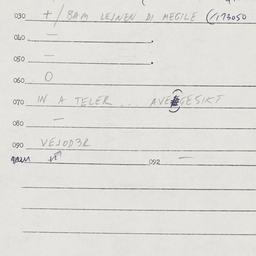 030 + / BAM LEINEN DI MEGILE (/173050
040 —
050 —
060 O
070 IN A TELER ... AVEGESIKT
080 —
090 VEJODER
092 —